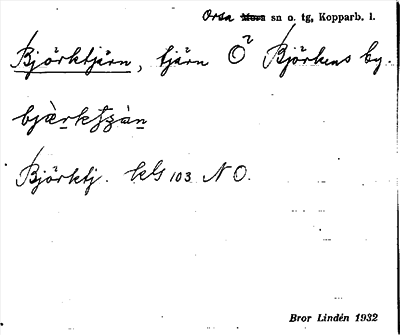 Orsa ~~Mora~~ sn o. tg, Kopparb. l.
Björktjärn, tjärn Ö Björkens by.
bjæ̀rktʂæ̀n
Björktj. kbl 103 NO.
Bror Lindén 1932